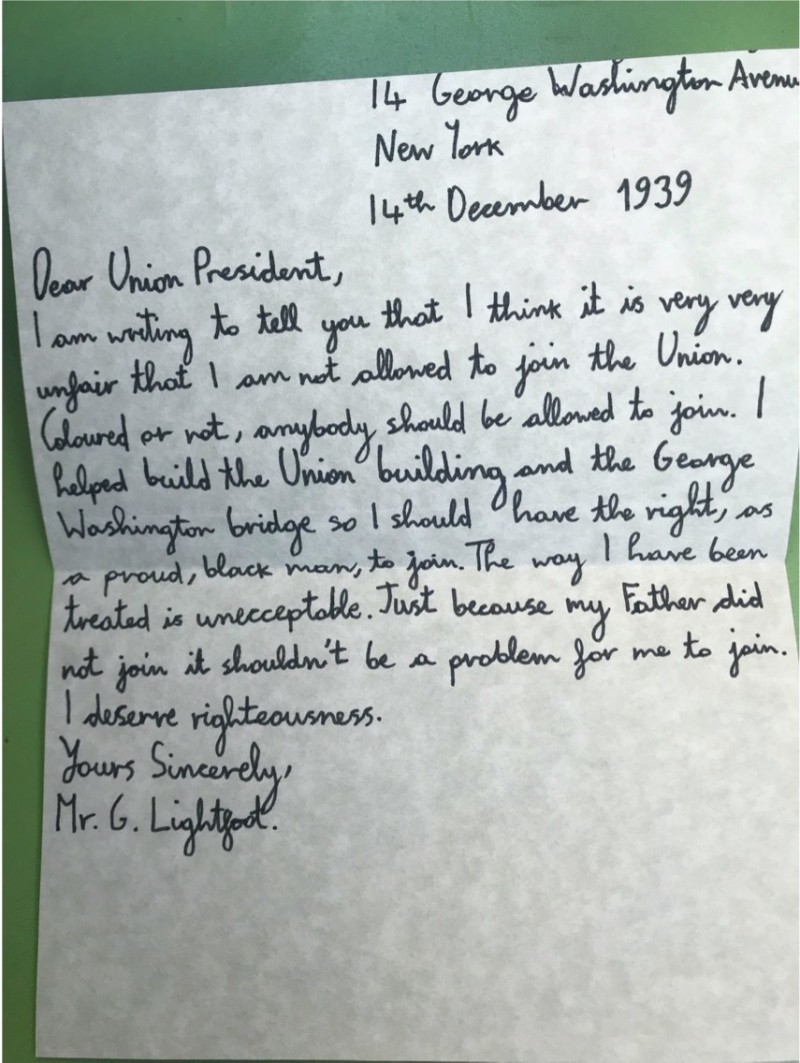 14 George Washington Avenu
New York
14th December 1939
Dear Union President,
I am writing to tell you that I think it is very very
unfair that I am not allowed to join the Union.
Coloured or not, anybody should be allowed to join. I
helped build the Union building and the George
Washington bridge so I should have the right, as
a proud, black man, to join. The way I have been
treated is unecceptable. Just because my Father did
not join it shouldn't be a problem for me to join.
I deserve righteousness.
Yours Sincerely,
Mr. G. Lightfoot.